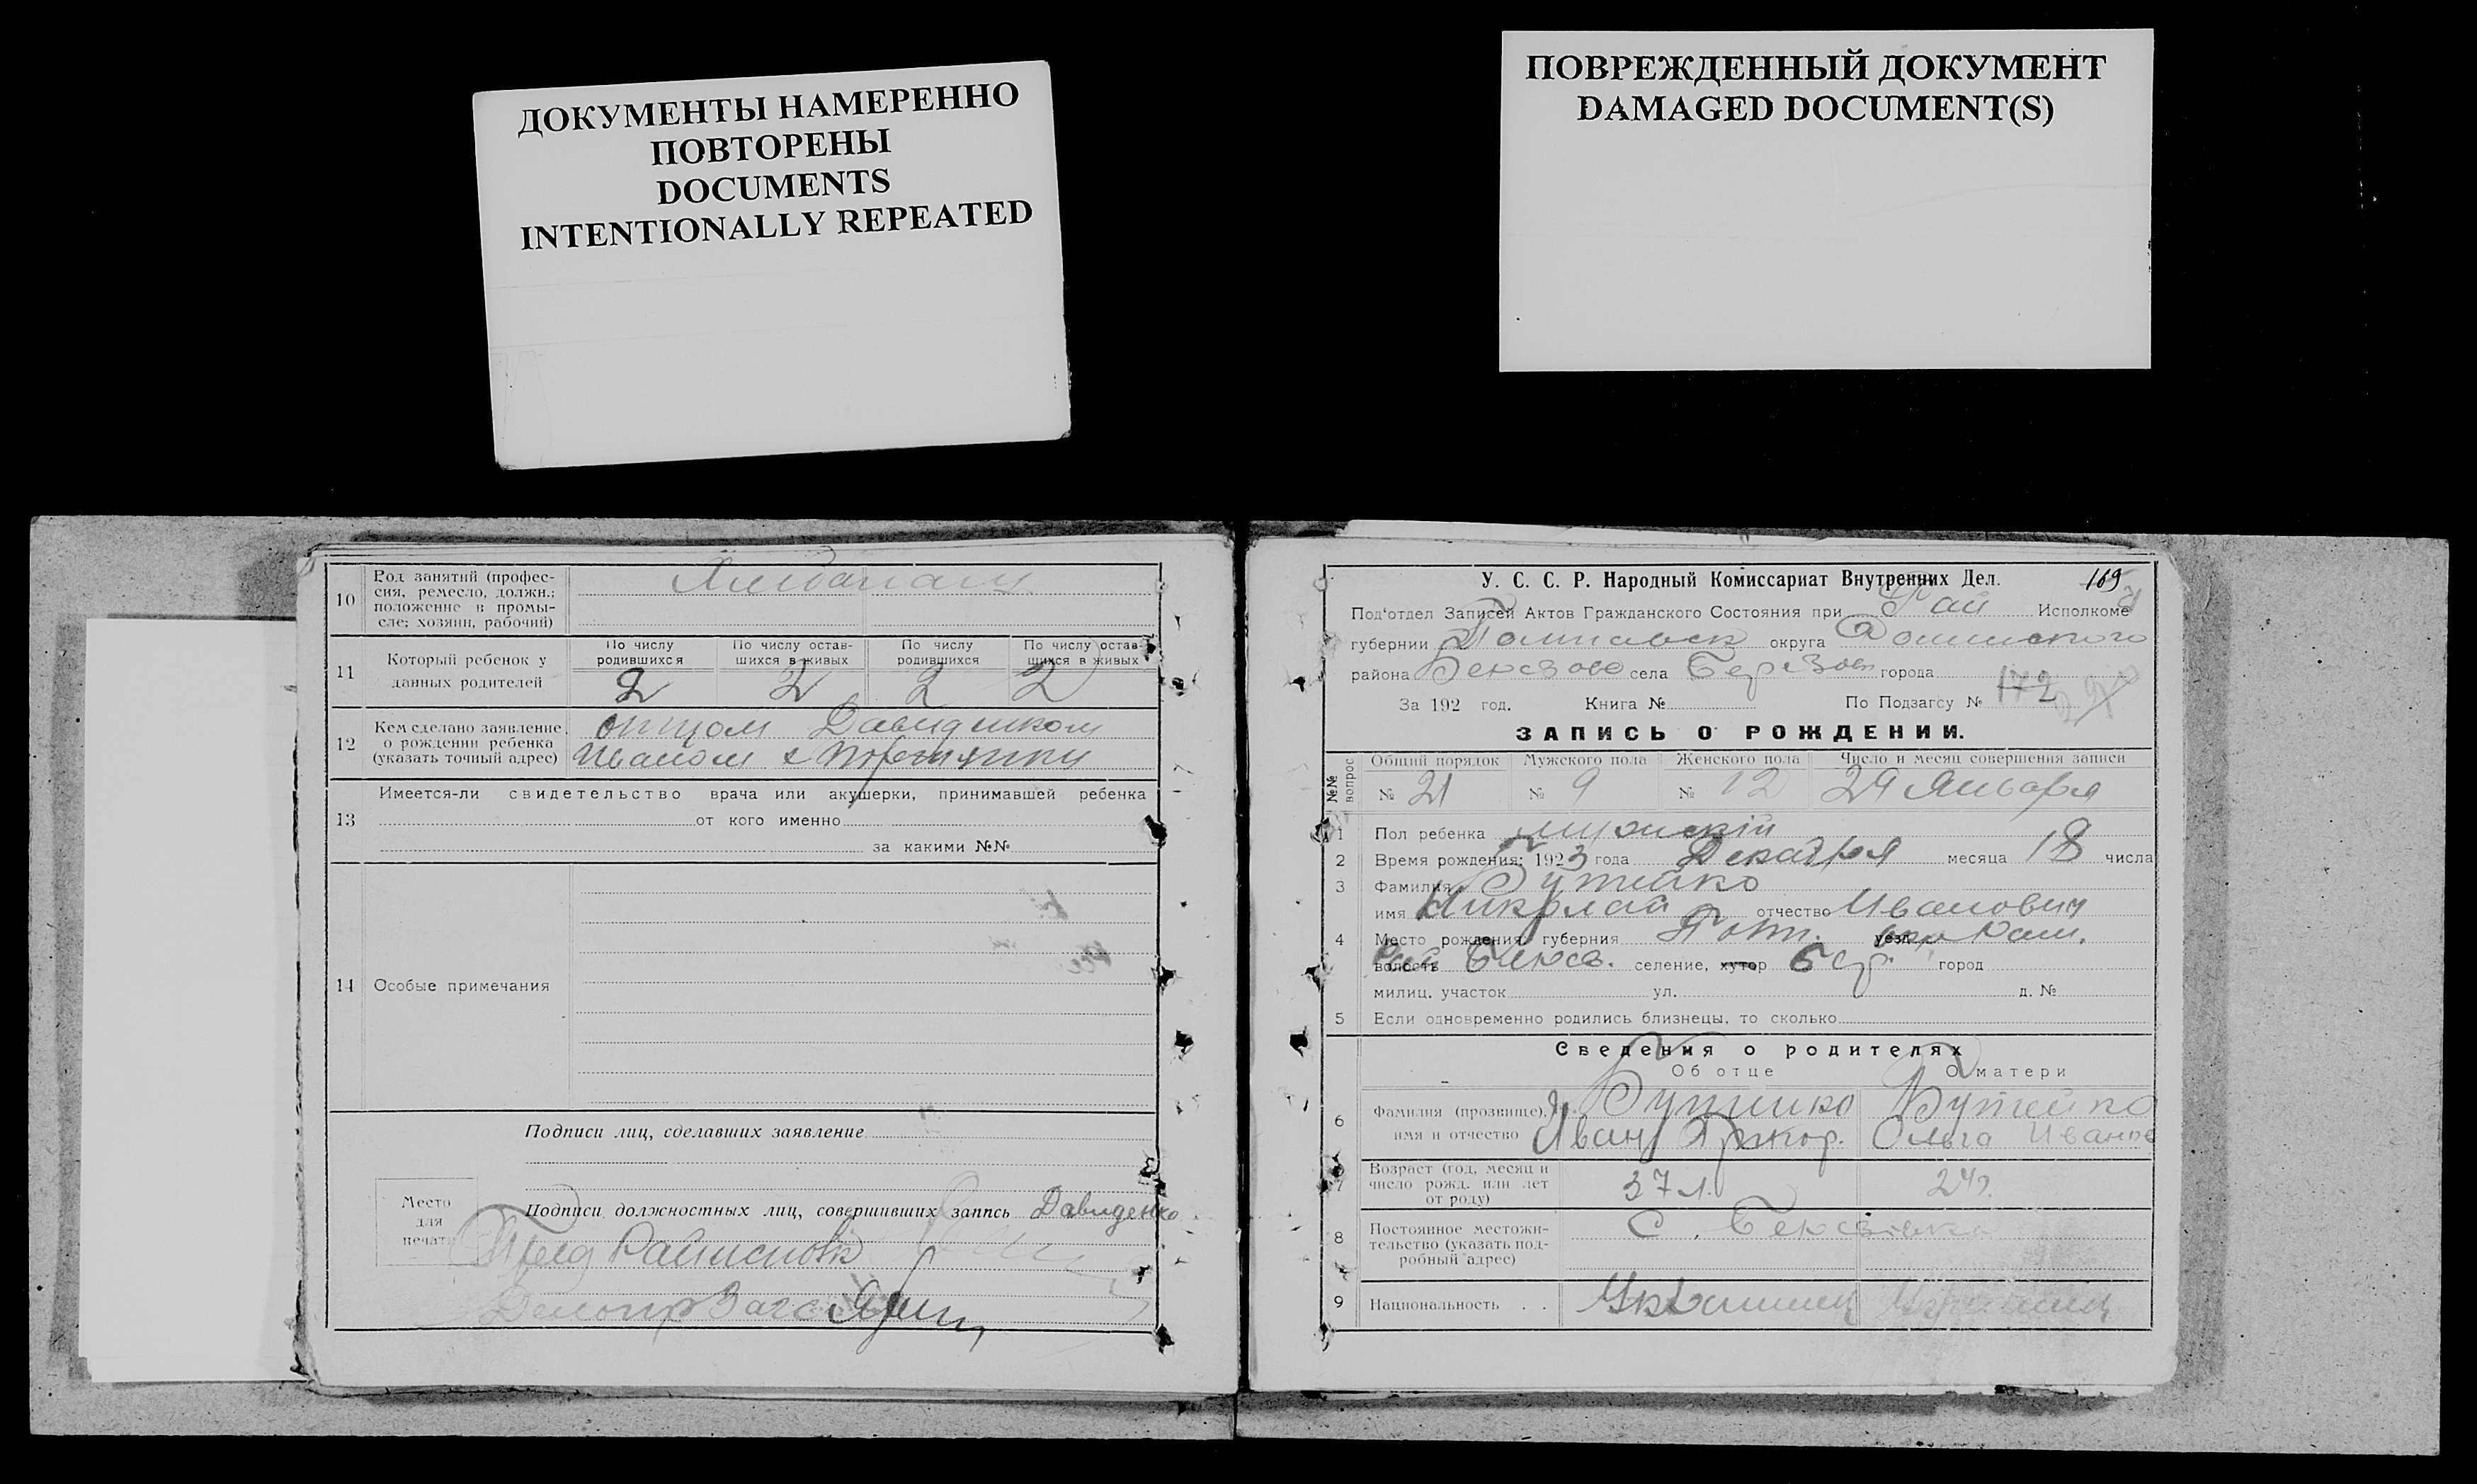 ДОКУМЕНТЫ НАМЕРЕННО
ПОВТОРЕНЫ
DOCUMENTS
INTENTIONALLY REPEATED
ПОВРЕЖДЕННЫЙ ДОКУМЕНТ
DAMAGED DOCUMENT(S)
10 Род занятий (профес-
сия, ремесло, должн.;
положение в промы-
сле; хозяин, рабочий)
11 Который ребенок у
данных родителей
По числу родившихся По числу остав- шихся в живых По числу родившихся По числу остав- шихся в живых
2 2 2 2
12 Кем сделано заявление
о рождении ребенка
(указать точный адрес)
отцом Давиденком
Иваном
13 Имеется-ли свидетельство врача или акушерки, принимавшей ребенка
от кого именно
за какими №№
14 Особые примечания
Подписи лиц, сделавших заявление
Место
для
печати
Подписи должностных лиц, совершивших запись Давиденко
Пред Райисполк
Делопр Загс
У. С. С. Р. Народный Комиссариат Внутренних Дел. 169
Под'отдел Записей Актов Гражданского Состояния при Рай Исполкоме
губернии округа
района села города
За 192 год. Книга № По Подзагсу № 172
ЗАПИСЬ О РОЖДЕНИИ.
№№ вопрос Общий порядок Мужского пола Женского пола Число и месяц совершения записи
№ 21 № 9 № 12 29 Января
1 Пол ребенка мужский
2 Время рождения: 1923 года Декабря месяца 18 числа
3 Фамилия Бутейко
имя Николай отчество Иванович
4 Место рождения, губерния Полт. уезд
волость селение, хутор Бер. город
милиц. участок ул. д. №
5 Если одновременно родились близнецы, то сколько
Сведения о родителях
Об отце О матери
6 Фамилия (прозвище),
имя и отчество
Бутейко Бутейко
Иван Григор. Ольга Иванов
7 Возраст (год, месяц и
число рожд. или лет
от роду)
37 л. 24 г.
8 Постоянное местожи-
тельство (указать под-
робный адрес)
с.
9 Национальность . . Украинец